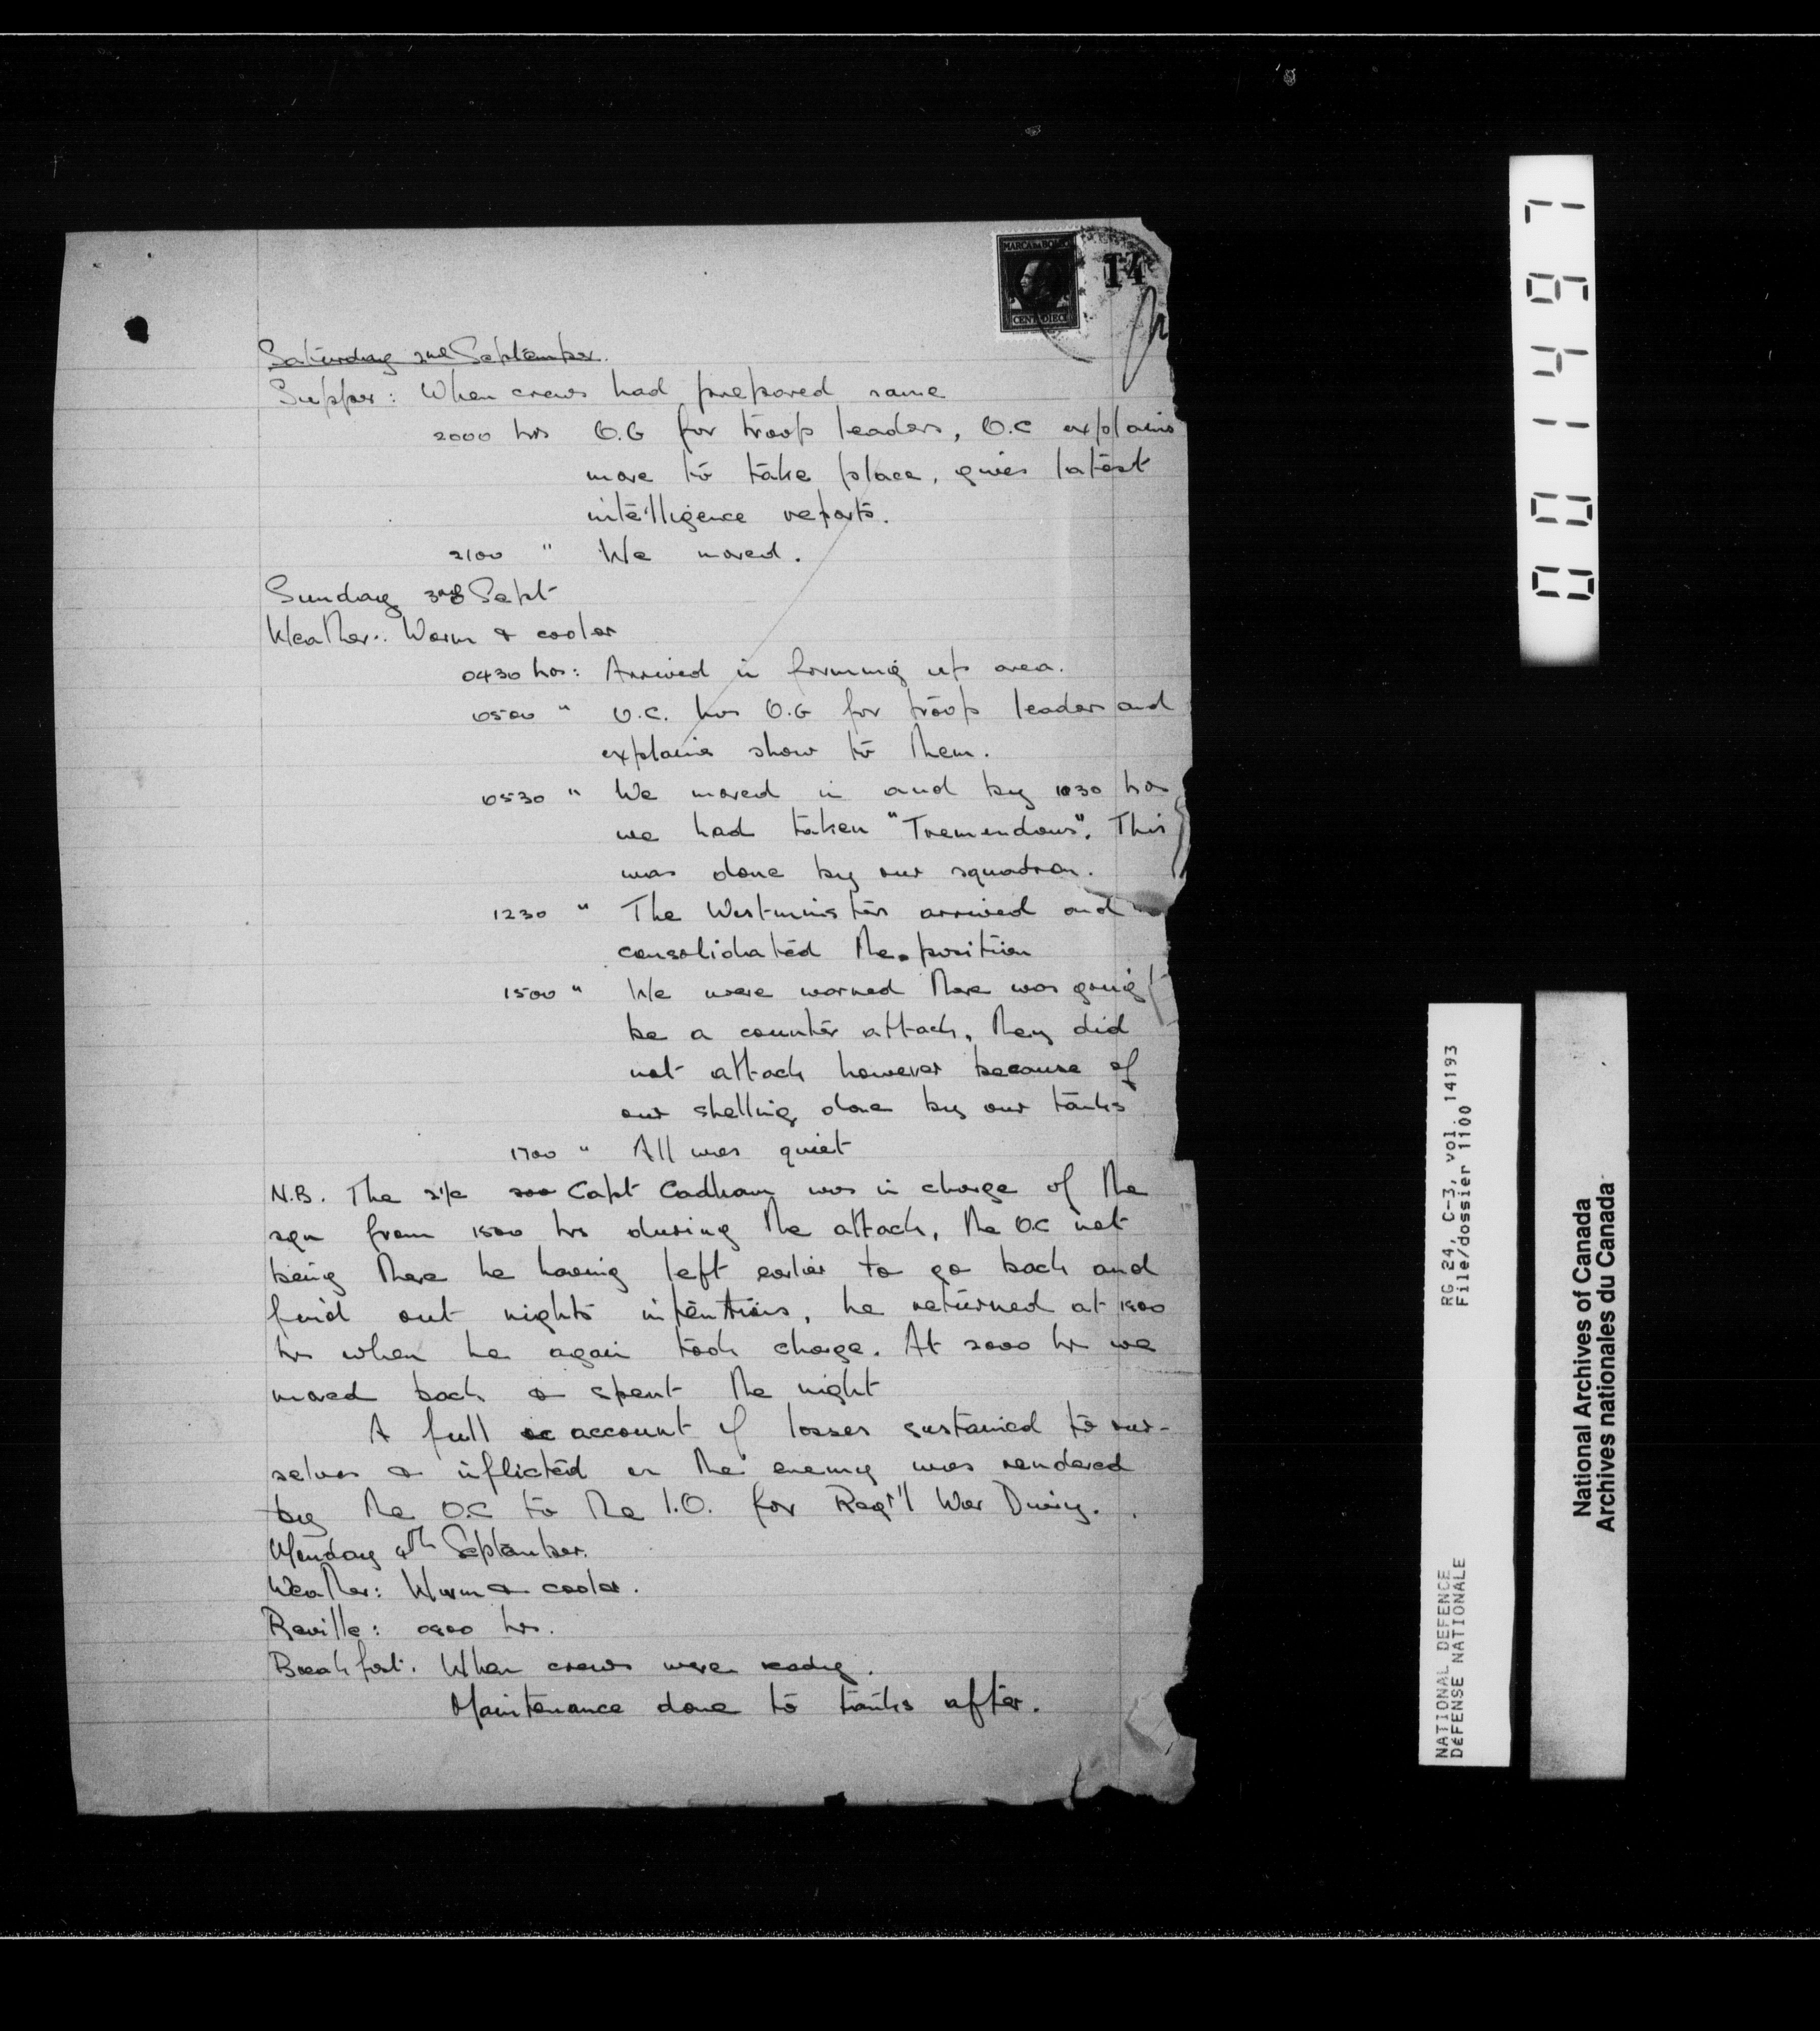 MARCA DA BOLLO
CENT. DIECI
T4
Saturday 2nd September.
Supper: When crews had prepared same
2000 hrs O.G for troop leaders, O.C explains
move to take place, gives latest
intelligence reports.
2100 " We moved.
Sunday 3rd Sept
Weather: Warm & cooler
0430 hrs: Arrived in forming up area.
0500 " O.C. has O.G for troop leaders and
explains show to them.
0530 " We moved in and by 1030 hrs
we had taken "Tremendous". This
was done by our squadron.
1230 " The Westminsters arrived and
consolidated the position
1500 " We were warned there was going
be a counter attack, they did
not attack however because of
our shelling done by our tanks
1700 " All was quiet
N.B. The 2i/c Capt Cadham was in charge of the
sqn from 1500 hrs during the attack, the O.C not
being there he having left earlier to go back and
find out nights intentions, he returned at 1800
hrs when he again took charge. At 2000 hr we
moved back & spent the night
A full account of losses sustained to our-
selves & inflicted on the enemy was rendered
by the O.C to the I.O. for Reg't'l War Diary.
Monday 4th September.
Weather: Warm & cooler.
Reville: 0800 hrs.
Breakfast. When crews were ready.
Maintenance done to tanks after.
001497
RG 24, C-3, vol. 14193
File/dossier 1100
NATIONAL DEFENCE
DÉFENSE NATIONALE
National Archives of Canada
Archives nationales du Canada